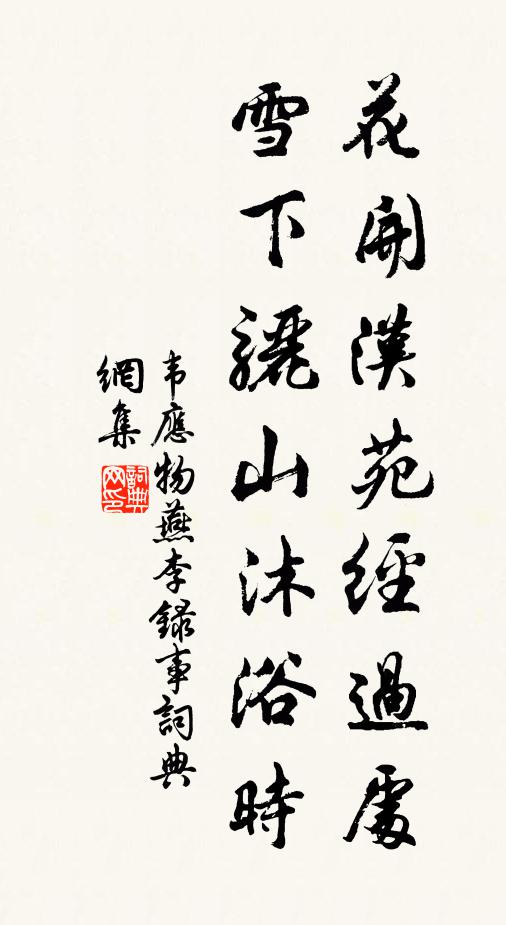 花開漢苑經過處
雪下驪山沐浴時
韦應物燕李録事詞典
網集
詞典网印